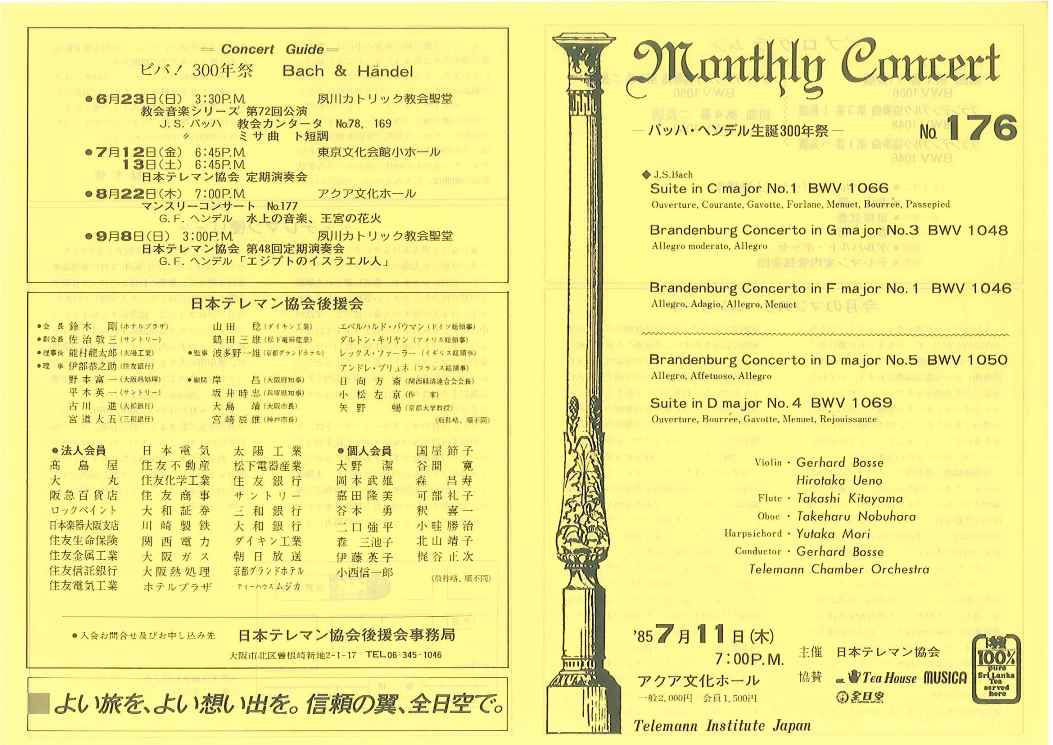 Concert Guide
ビバ! 300年祭 Bach & Händel
●6月23日(日) 3:30P.M. 夙川カトリック教会聖堂
教会音楽シリーズ 第72回公演
J.S.バッハ 教会カンタータ No.78, 169
〃 ミサ曲 ト短調
●7月12日(金) 6:45P.M. 東京文化会館小ホール
13日(土) 6:45P.M.
日本テレマン協会 定期演奏会
●8月22日(木) 7:00P.M. アクア文化ホール
マンスリーコンサート No.177
G.F. ヘンデル 水上の音楽、王宮の花火
●9月8日(日) 3:00P.M. 夙川カトリック教会聖堂
日本テレマン協会 第48回定期演奏会
G.F. ヘンデル「エジプトのイスラエル人」
日本テレマン協会後援会
●会長 鈴木 剛(ホテルプラザ) 山田 稔(ダイキン工業) エベルハルド・バウマン(ドイツ総領事)
●副会長 佐治敬三(サントリー) 鶴田三雄(松下電器産業) ダルトン・キリヤン(アメリカ総領事)
●理事長 能村龍太郎(太陽工業) ●監事 波多野一雄(京都グランドホテル) レックス・ファーラー(イギリス総領事)
●理事 伊部恭之助(住友銀行) アンドレ・プリュネ(フランス総領事)
野本富一(大阪熱処理) ●顧問 岸 昌(大阪府知事) 日向方斎(関西経済連合会会長)
平木英一(サントリー) 坂井時忠(兵庫県知事) 小松左京(作家)
古川 進(大和銀行) 大島 靖(大阪市長) 矢野 暢(京都大学教授)
宮道大五(三和銀行) 宮崎辰雄(神戸市長) (敬称略、順不同)
●法人会員 日本電気 太陽工業 ●個人会員 国屋節子
髙島屋 住友不動産 松下電器産業 大野 潔 谷間 寛
大丸 住友化学工業 住友銀行 岡本武雄 森 昌寿
阪急百貨店 住友商事 サントリー 嘉田隆美 可部礼子
ロックペイント 大和証券 三和銀行 谷本 勇 釈 喜一
日本楽器大阪支店 川崎製鉄 大和銀行 二口強平 小畦勝治
住友生命保険 関西電力 ダイキン工業 森 三池子 北山靖子
住友金属工業 大阪ガス 朝日放送 伊藤英子 梶谷正次
住友信託銀行 大阪熱処理 京都グランドホテル 小西信一郎 (敬称略、順不同)
住友電気工業 ホテルプラザ ティーハウスムジカ
●入会お問合せ及びお申し込み先 日本テレマン協会後援会事務局
大阪市北区曽根崎新地2-1-17 TEL.06-345-1046
よい旅を、よい想い出を。信頼の翼、全日空で。
Monthly Concert
—バッハ・ヘンデル生誕300年祭— No. 176
◆J.S.Bach
Suite in C major No.1 BWV 1066
Ouverture, Courante, Gavotte, Forlane, Menuet, Bourrée, Passepied
Brandenburg Concerto in G major No.3 BWV 1048
Allegro moderato, Allegro
Brandenburg Concerto in F major No.1 BWV 1046
Allegro, Adagio, Allegro, Menuet
Brandenburg Concerto in D major No.5 BWV 1050
Allegro, Affetuoso, Allegro
Suite in D major No.4 BWV 1069
Ouverture, Bourrée, Gavotte, Menuet, Rejouissance
Violin・Gerhard Bosse
Hirotaka Ueno
Flute・Takashi Kitayama
Oboe・Takeharu Nobuhara
Harpsichord・Yutaka Mori
Conductor・Gerhard Bosse
Telemann Chamber Orchestra
'85 7月11日(木)
7:00P.M.
アクア文化ホール
一般2,000円 会員1,500円
主催 日本テレマン協会
協賛 Tea House MUSICA
全日空
100%
pure
Sri Lanka
Tea
served
here
Telemann Institute Japan